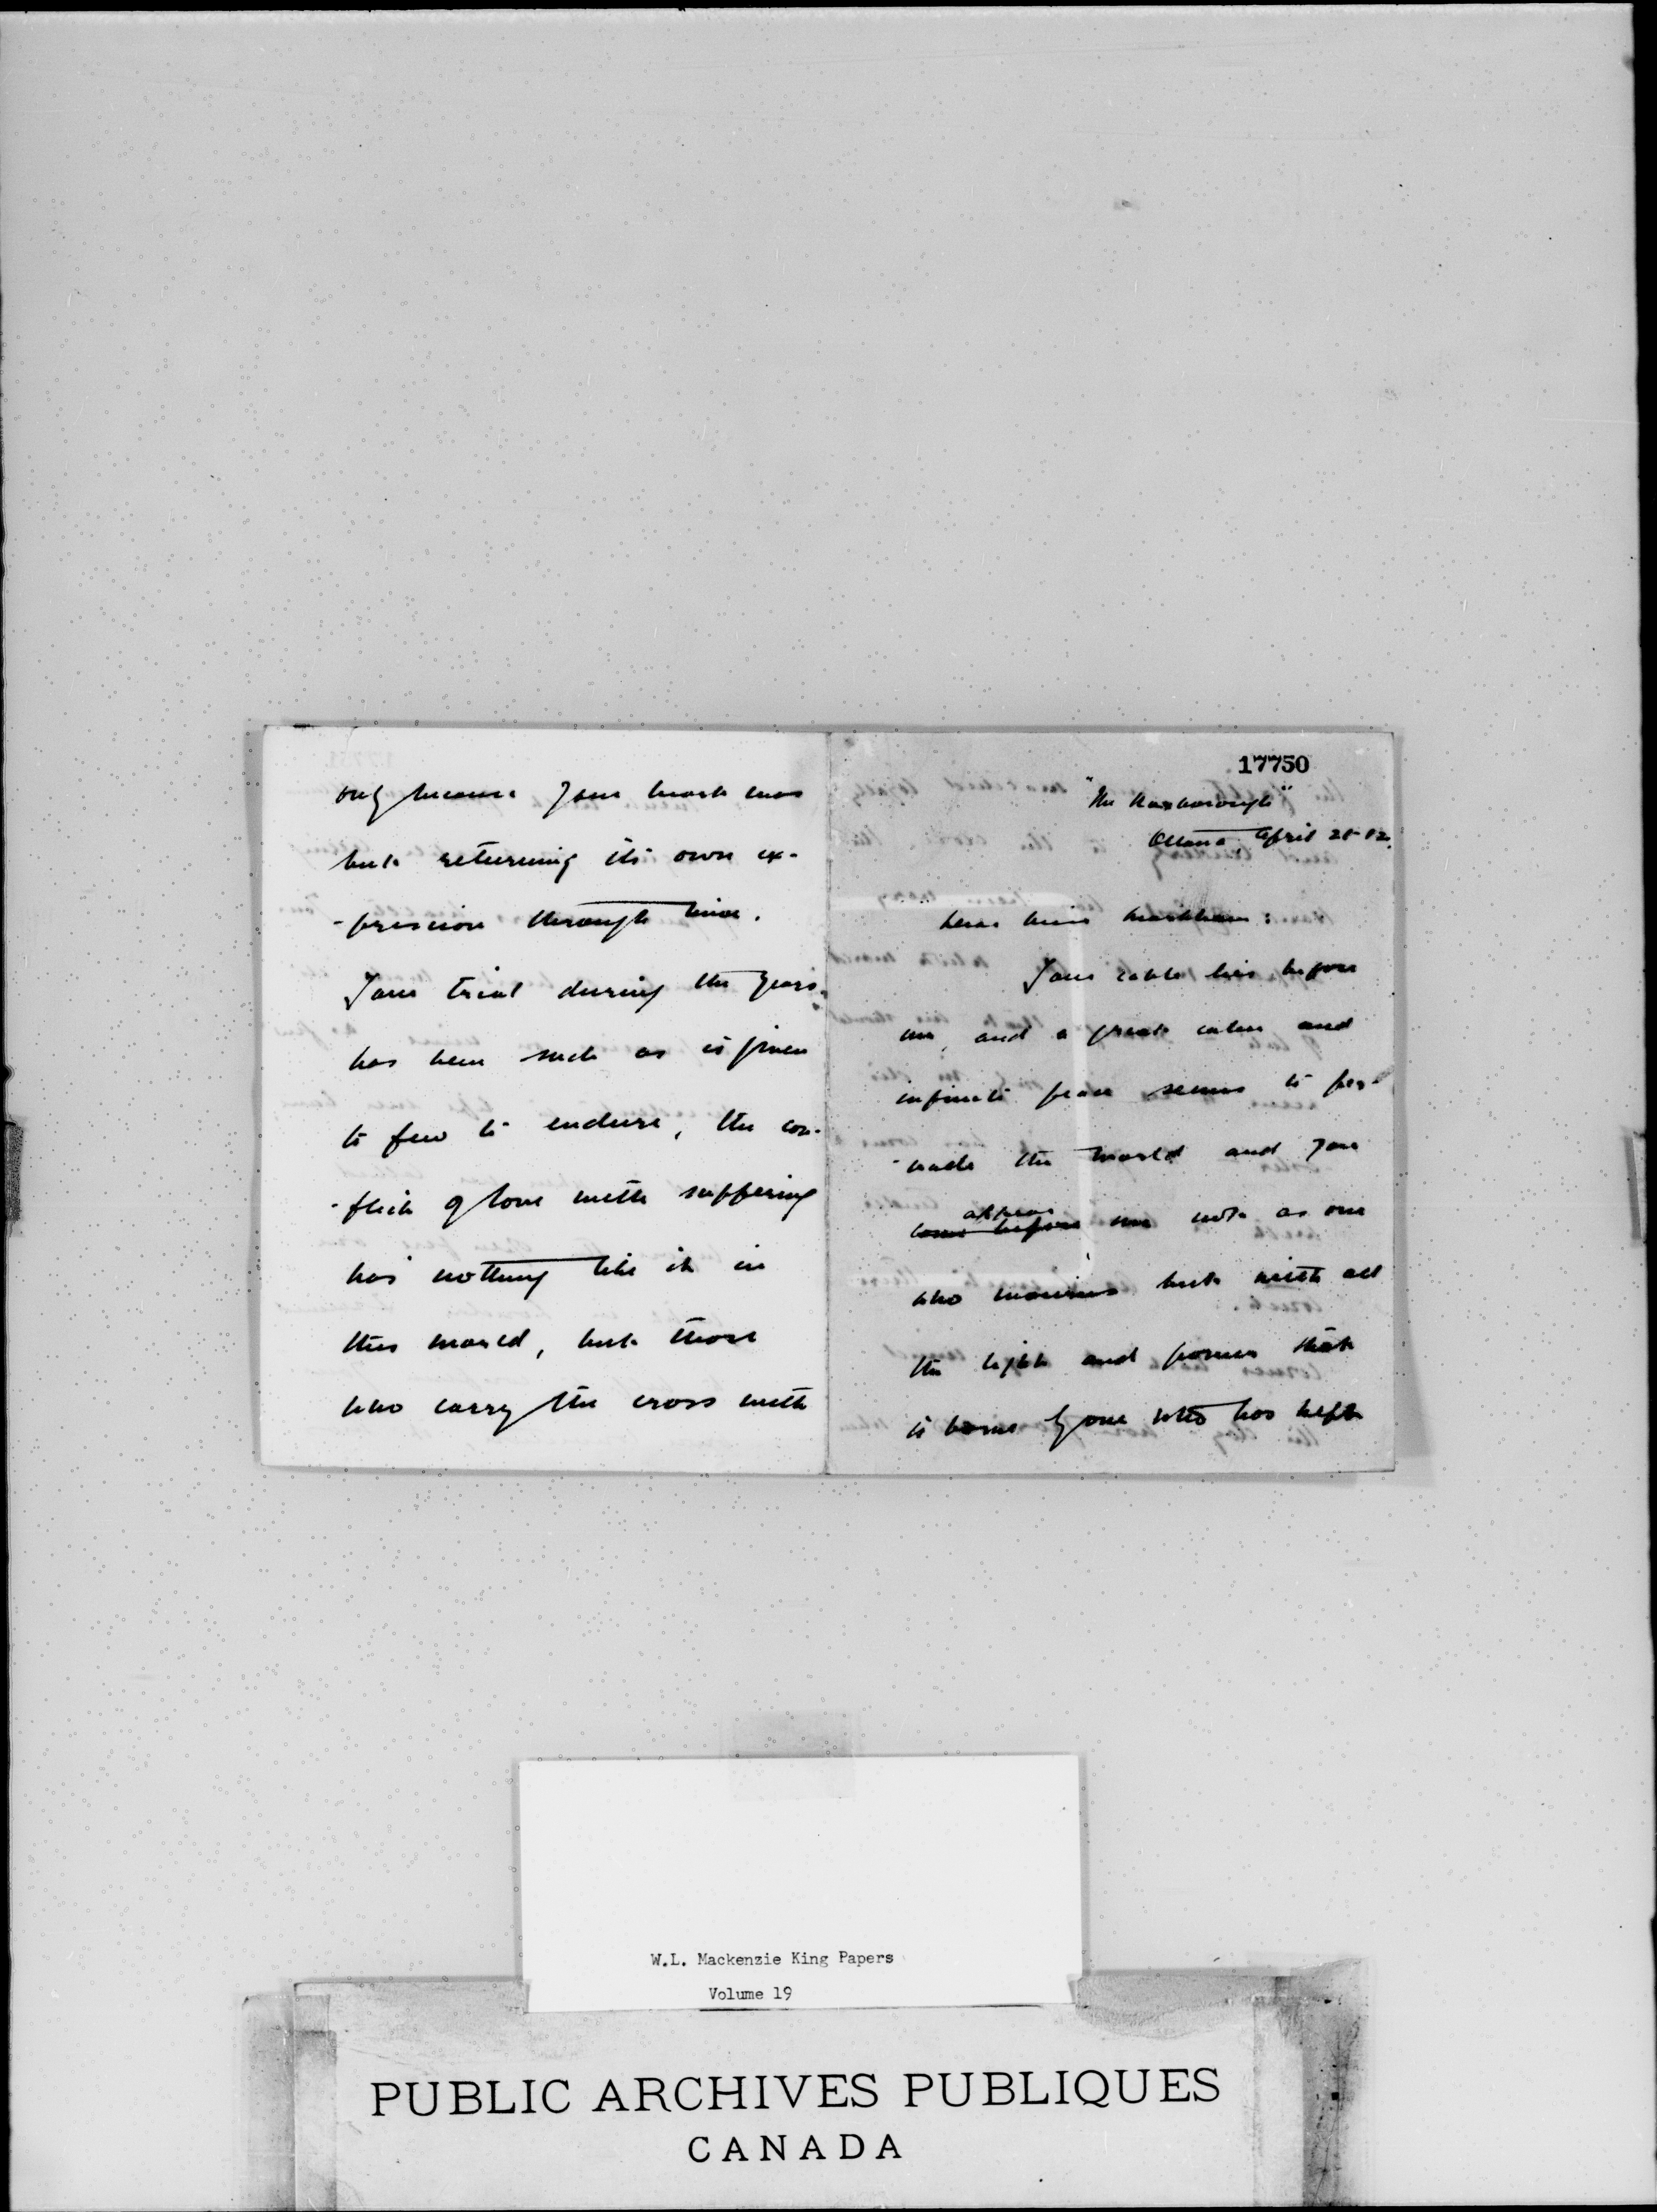 17750
"The Roxborough"
Ottawa, April 28-12.
Dear Miss Markham:
Your cable lies before
me, and a great calm and
infinite peace seems to per-
-vade the world and you
appear
come before me not as one
who mourns but with all
the light and power that
is borne by one who has kept
only because your heart was
but returning its own ex-
-pression through mine.
Your trial during the years
has been such as is given
to few to endure, the con-
-flict of love with suffering
has nothing like it in
this world, but those
who carry the cross with
W.L. Mackenzie King Papers
Volume 19
PUBLIC ARCHIVES PUBLIQUES
CANADA